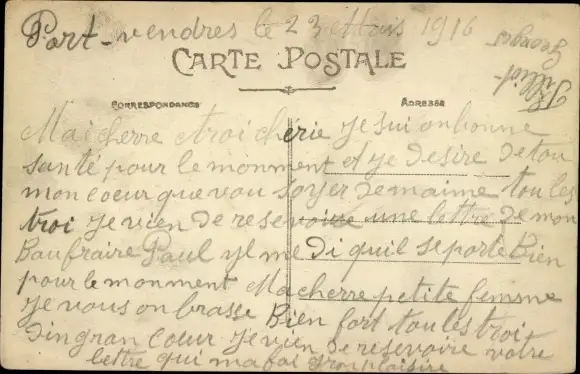 Port-vendres le 23 Mars 1916
CARTE POSTALE
CORRESPONDANCE
ADRESSE
Georges
Macherre troi cherie je sui onbonne
santé pour le monment et je desire de tou
mon coeur que vou soyer demaime tou les
troi je vien de resevoire une lettre de mon
Baufraire Paul yl me di quil se porte Bien
pour le monment Macherre petite femme
je vous on brasse Bien fort tou les troi
din gran coeur je vien de resevoire votre
lettre qui ma fai gronplaisire